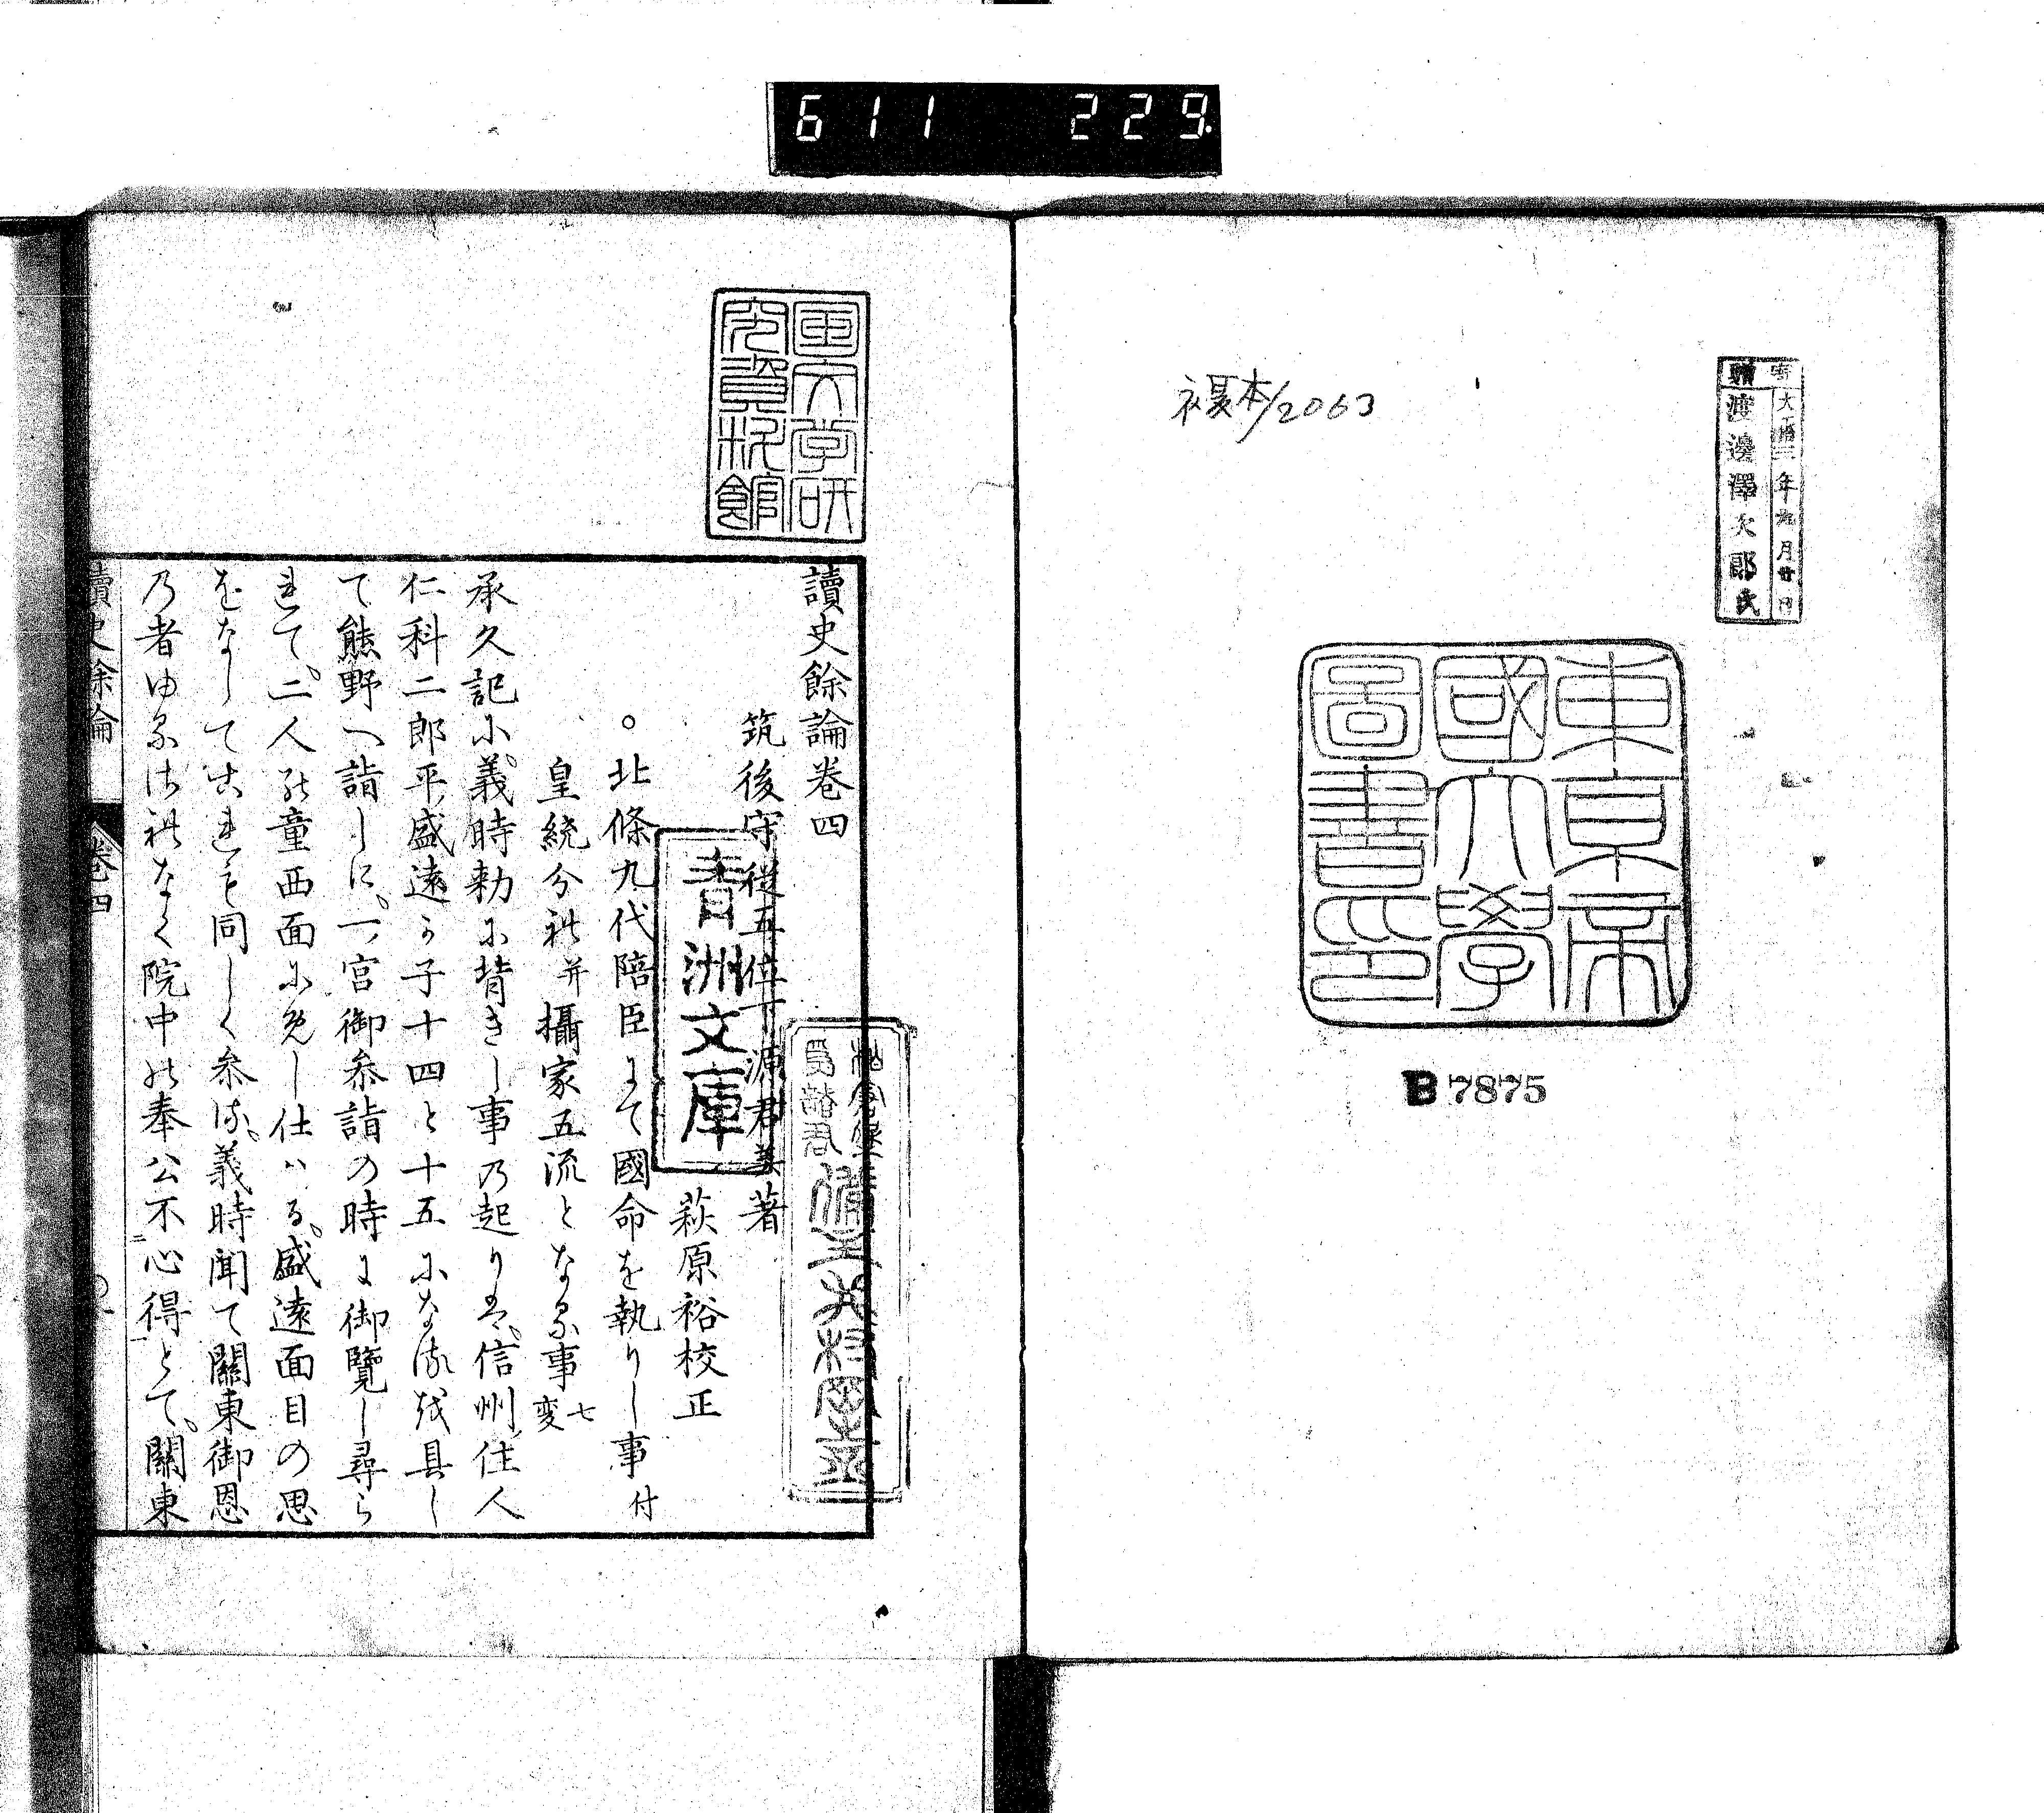 611 229.
寄贈
大正三年九月廿 日
渡邊澤次郎氏
複本/2063
東京帝
國大學
圖書印
B 7875
國文学研
究資料館
讀史餘論巻四
筑後守従五位下源君美著
萩原裕校正
青洲文庫
。北條九代陪臣にて國命を執りし事付
皇統分れ并攝家五流となる事七変
承久記に義時勅に背きし事の起りは。信州住人
仁科二郎平盛遠か子十四と十五になる我具し
て熊野へ詣しに。一宮御参詣の時に御覽し尋ら
れて。二人の童西面に免し仕はる。盛遠面目の思
をなしてこれも同しく参る。義時聞て關東御恩
の者ゆるされなく院中の奉公不心得とて。關東
讀史餘論 巻四 一